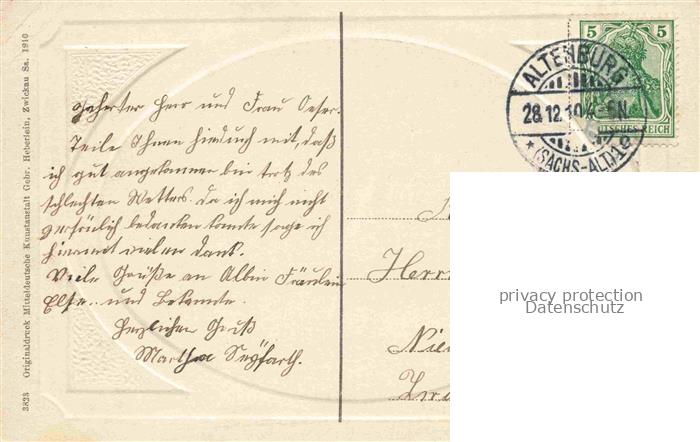 3823 Originaldruck Mitteldeutsche Kunstanstalt Gebr. Heberlein, Zwickau Sa. 1910
geehrter Herr und Frau Oeser.
Teile Ihnen hiedurch mit, daß
ich gut angekommen bin trotz des
schlechten Wetters. Da ich mich nicht
persönlich bedanken konnte sage ich
hiermit vielen Dank.
Viele Grüße an Albin Fräulein
Else und Bekannte.
Herzlichen Gruß
Martha Seyfarth.
5 5
DEUTSCHES REICH
ALTENBURG
28.12.10 4-5N.
* (SACHS-ALT.) 1c
Herrn
privacy protection
Datenschutz